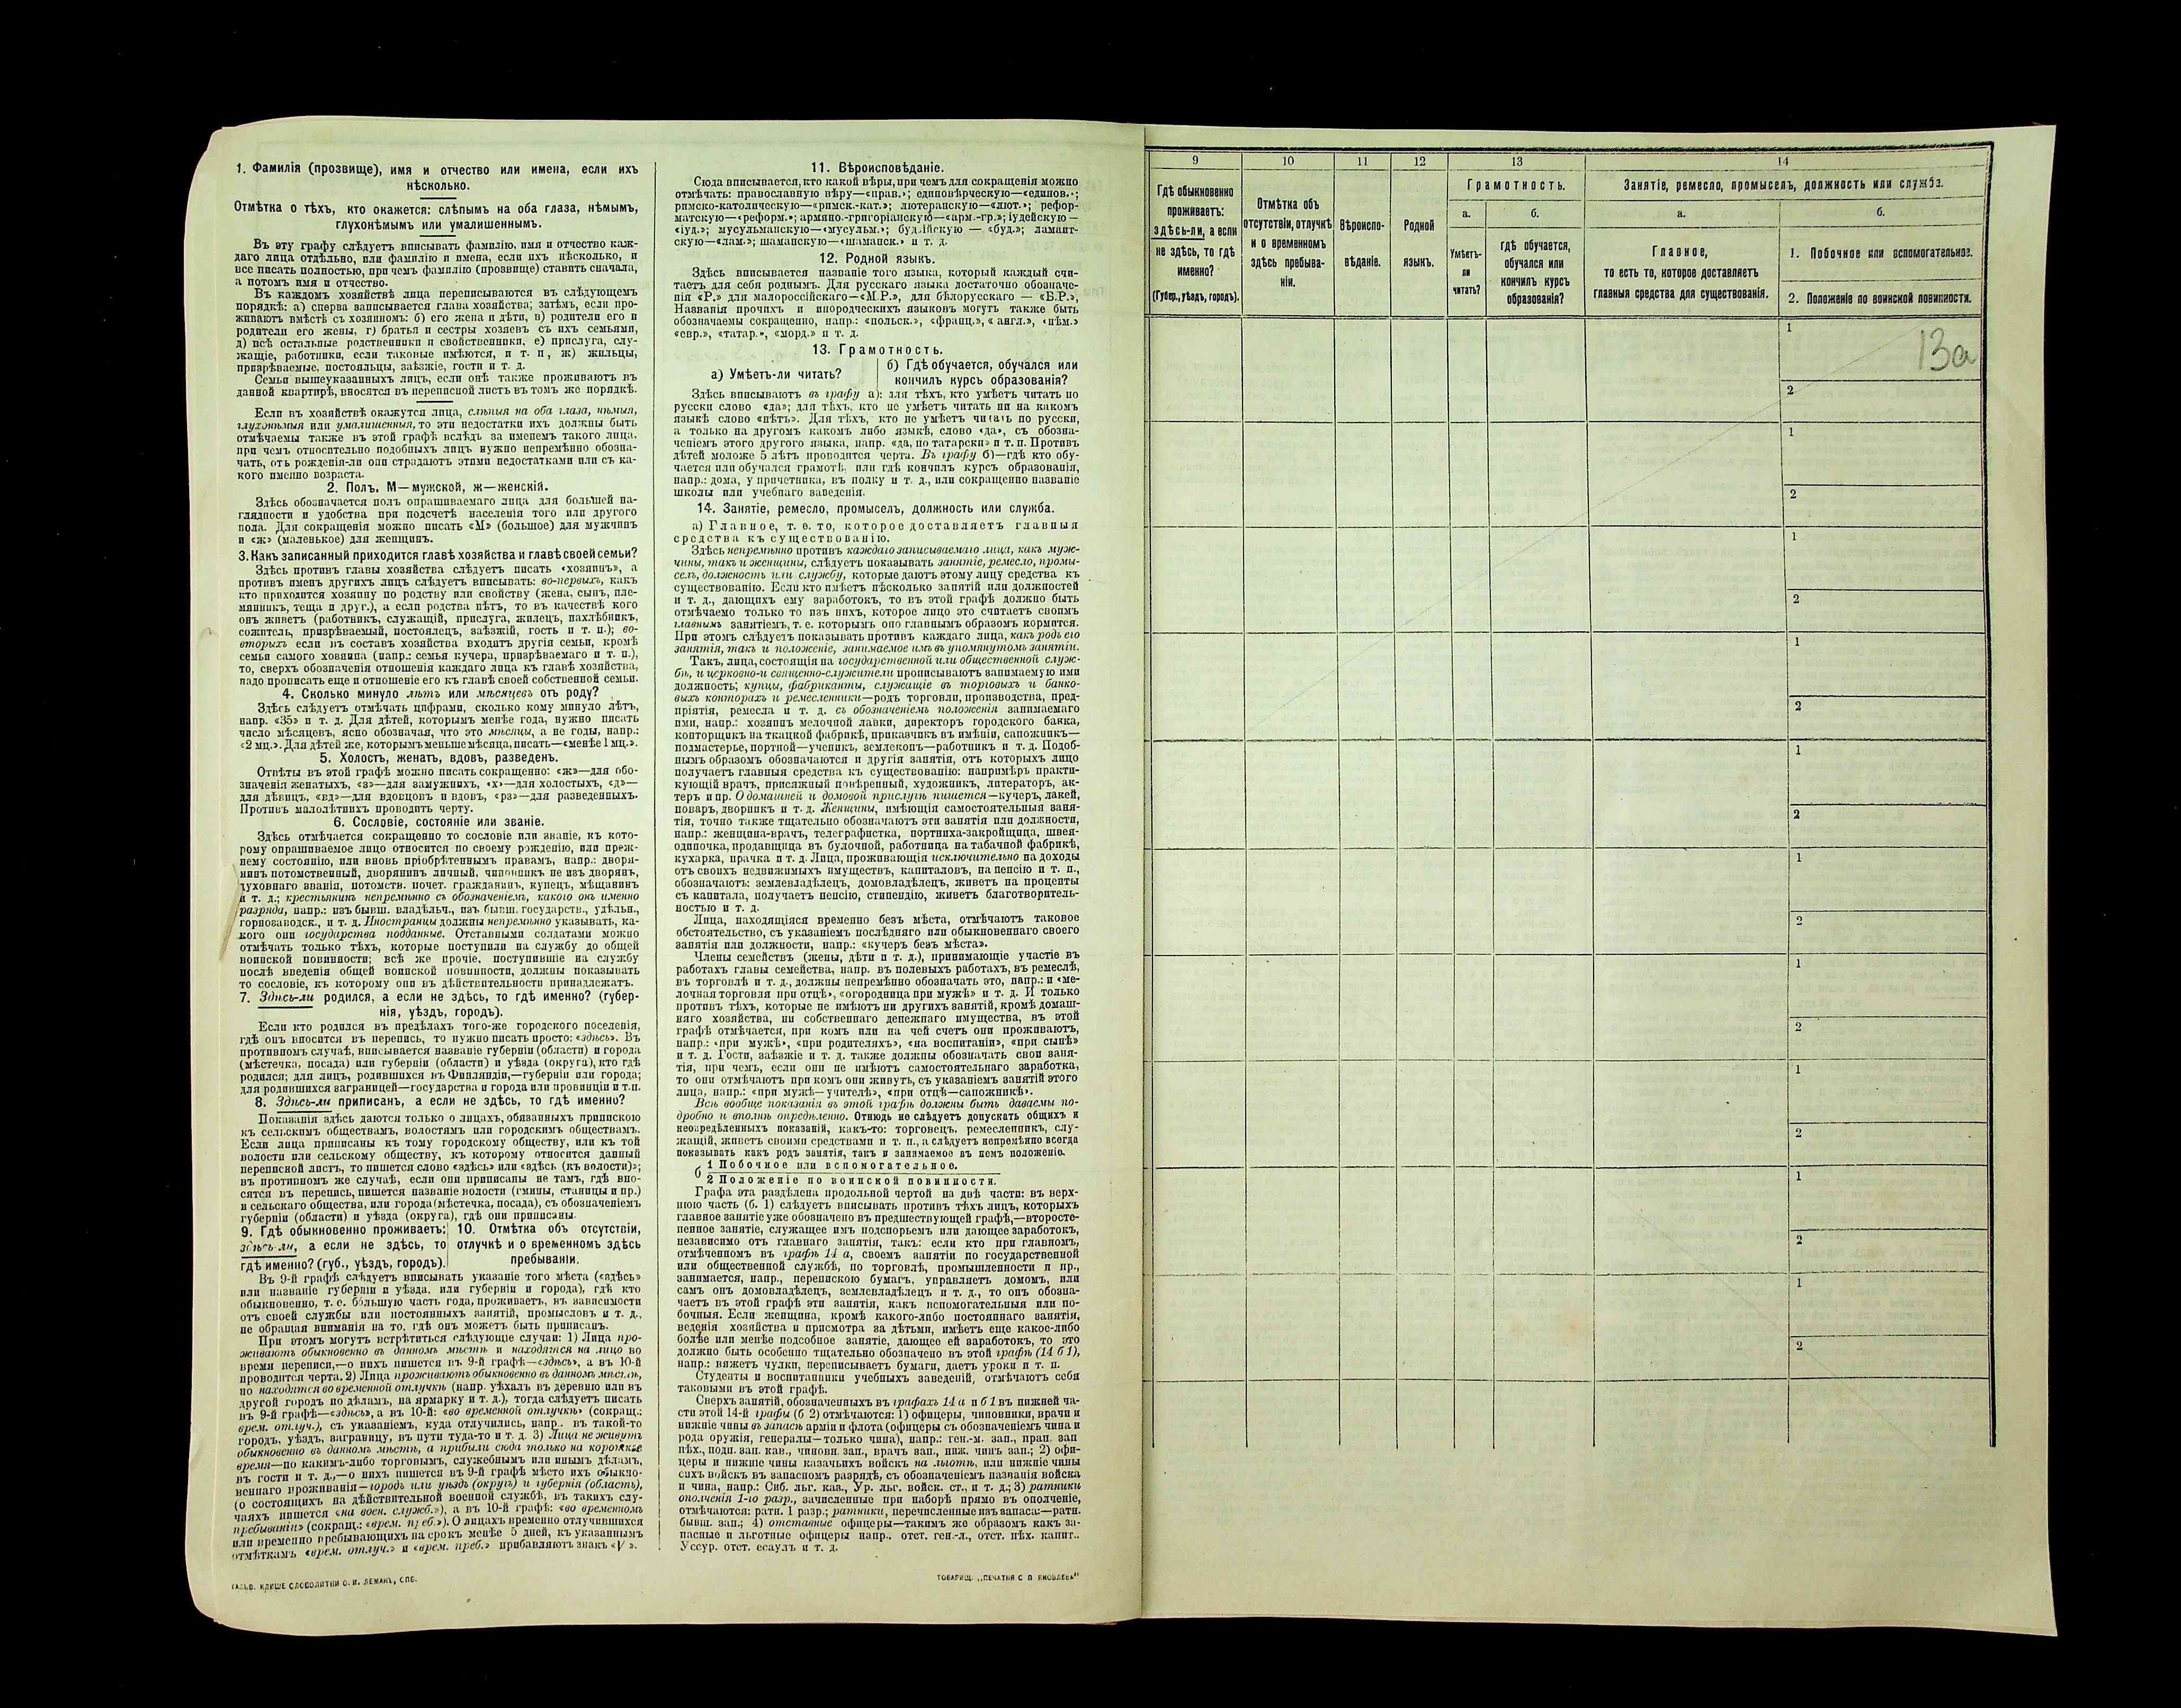 1. Фамилія (прозвище), имя и отчество или имена, если ихъ
нѣсколько.
Отмѣтка о тѣхъ, кто окажется: слѣпымъ на оба глаза, нѣмымъ,
глухонѣмымъ или умалишеннымъ.
Въ эту графу слѣдуетъ вписывать фамилію, имя и отчество каж-
даго лица отдѣльно, или фамилію и имена, если ихъ нѣсколько, и
все писать полностью, при чемъ фамилію (прозвище) ставить сначала,
а потомъ имя и отчество.
Въ каждомъ хозяйствѣ лица переписываются въ слѣдующемъ
порядкѣ: а) сперва записывается глава хозяйства; затѣмъ, если про-
живаютъ вмѣстѣ съ хозяиномъ: б) его жена и дѣти, в) родители его и
родители его жены, г) братья и сестры хозяевъ съ ихъ семьями,
д) всѣ остальные родственники и свойственники, е) прислуга, слу-
жащіе, работники, если таковые имѣются, и т. п, ж) жильцы,
призрѣваемые, постояльцы, заѣзжіе, гости и т. д.
Семьи вышеуказанныхъ лицъ, если онѣ также проживаютъ въ
данной квартирѣ, вносятся въ переписной листъ въ томъ же порядкѣ.
Если въ хозяйствѣ окажутся лица, слѣпыя на оба глаза, нѣмыя,
глухонѣмыя или умалишенныя, то эти недостатки ихъ должны быть
отмѣчаемы также въ этой графѣ вслѣдъ за именемъ такого лица.
при чемъ относительно подобныхъ лицъ нужно непремѣнно обозна-
чать, отъ рожденія-ли они страдаютъ этими недостатками или съ ка-
кого именно возраста.
2. Полъ, М—мужской, ж—женскій.
Здѣсь обозначается полъ опрашиваемаго лица для большей на-
глядности и удобства при подсчетѣ населенія того или другого
пола. Для сокращенія можно писать «М» (большое) для мужчинъ
и «ж» (маленькое) для женщинъ.
3. Какъ записанный приходится главѣ хозяйства и главѣ своей семьи?
Здѣсь противъ главы хозяйства слѣдуетъ писать «хозяинъ», а
противъ именъ другихъ лицъ слѣдуетъ вписывать: во-первыхъ, какъ
кто приходится хозяину по родству или свойству (жена, сынъ, пле-
мянникъ, теща и друг.), а если родства нѣтъ, то въ качествѣ кого
онъ живетъ (работникъ, служащій, прислуга, жилецъ, нахлѣбникъ,
сожитель, призрѣваемый, постоялецъ, заѣзжій, гость и т. п.); во-
вторыхъ если въ составъ хозяйства входятъ другія семьи, кромѣ
семьи самого хозяина (напр.: семья кучера, призрѣваемаго и т. п.),
то, сверхъ обозначенія отношенія каждаго лица къ главѣ хозяйства,
надо прописать еще и отношеніе его къ главѣ своей собственной семьи.
4. Сколько минуло лѣтъ или мѣсяцевъ отъ роду?
Здѣсь слѣдуетъ отмѣчать цифрами, сколько кому минуло лѣтъ,
напр. «35» и т. д. Для дѣтей, которымъ менѣе года, нужно писать
число мѣсяцевъ, ясно обозначая, что это мѣсяцы, а не годы, напр.:
«2 мц.». Для дѣтей же, которымъ меньше мѣсяца, писать—«менѣе 1 мц.».
5. Холостъ, женатъ, вдовъ, разведенъ.
Отвѣты въ этой графѣ можно писать сокращенно: «ж»—для обо-
значенія женатыхъ, «з»—для замужнихъ, «х»—для холостыхъ, «д»—
для дѣвицъ, «вд»—для вдовцовъ и вдовъ, «рз»—для разведенныхъ.
Противъ малолѣтнихъ проводить черту.
6. Сословіе, состояніе или званіе.
Здѣсь отмѣчается сокращенно то сословіе или званіе, къ кото-
рому опрашиваемое лицо относится по своему рожденію, или преж-
нему состоянію, или вновь пріобрѣтеннымъ правамъ, напр.: дворя-
нинъ потомственный, дворянинъ личный, чиновникъ не изъ дворянъ,
духовнаго званія, потомств. почет. гражданинъ, купецъ, мѣщанинъ
и т. д.; крестьянинъ непремѣнно съ обозначеніемъ, какого онъ именно
разряда, напр.: изъ бывш. владѣльч., изъ бывш. государств., удѣльн.,
горнозаводск., и т. д. Иностранцы должны непремѣнно указывать, ка-
кого они государства подданные. Отставными солдатами можно
отмѣчать только тѣхъ, которые поступили на службу до общей
воинской повинности; всѣ же прочіе, поступившіе на службу
послѣ введенія общей воинской повинности, должны показывать
то сословіе, къ которому они въ дѣйствительности принадлежатъ.
7. Здѣсь-ли родился, а если не здѣсь, то гдѣ именно? (губер-
нія, уѣздъ, городъ).
Если кто родился въ предѣлахъ того-же городского поселенія,
гдѣ онъ вносится въ перепись, то нужно писать просто: «здѣсь». Въ
противномъ случаѣ, вписывается названіе губерніи (области) и города
(мѣстечка, посада) или губерніи (области) и уѣзда (округа), кто гдѣ
родился; для лицъ, родившихся въ Финляндіи,—губерніи или города;
для родившихся заграницей—государства и города или провинціи и т.п.
8. Здѣсь-ли приписанъ, а если не здѣсь, то гдѣ именно?
Показанія здѣсь даются только о лицахъ, обязанныхъ припискою
къ сельскимъ обществамъ, волостямъ или городскимъ обществамъ.
Если лица приписаны къ тому городскому обществу, или къ той
волости или сельскому обществу, къ которому относится данный
переписной листъ, то пишется слово «здѣсь» или «здѣсь (къ волости)»;
въ противномъ же случаѣ, если они приписаны не тамъ, гдѣ вно-
сятся въ перепись, пишется названіе волости (гмины, станицы и пр.)
и сельскаго общества, или города (мѣстечка, посада), съ обозначеніемъ
губерніи (области) и уѣзда (округа), гдѣ они приписаны.
9. Гдѣ обыкновенно проживаетъ:
здѣсь-ли, а если не здѣсь, то
гдѣ именно? (губ., уѣздъ, городъ).
10. Отмѣтка объ отсутствіи,
отлучкѣ и о временномъ здѣсь
пребываніи.
Въ 9-й графѣ слѣдуетъ вписывать указаніе того мѣста («здѣсь»
или названіе губерніи и уѣзда, или губерніи и города), гдѣ кто
обыкновенно, т. е. бо́льшую часть года, проживаетъ, въ зависимости
отъ своей службы или постоянныхъ занятій, промысловъ и т. д.,
не обращая вниманія на то, гдѣ онъ можетъ быть приписанъ.
При этомъ могутъ встрѣтиться слѣдующіе случаи: 1) Лица про-
живаютъ обыкновенно въ данномъ мѣстѣ и находятся на лицо во
время переписи,—о нихъ пишется въ 9-й графѣ—«здѣсь», а въ 10-й
проводится черта. 2) Лица проживаютъ обыкновенно въ данномъ мѣстѣ,
но находятся во временной отлучкѣ (напр. уѣхалъ въ деревню или въ
другой городъ по дѣламъ, на ярмарку и т. д.), тогда слѣдуетъ писать
въ 9-й графѣ—«здѣсь», а въ 10-й: «во временной отлучкѣ» (сокращ.:
врем. отлуч.), съ указаніемъ, куда отлучились, напр.. въ такой-то
городъ, уѣздъ, заграницу, въ пути туда-то и т. д. 3) Лица не живутъ
обыкновенно въ данномъ мѣстѣ, а прибыли сюда только на короткое
время—по какимъ-либо торговымъ, служебнымъ или инымъ дѣламъ,
въ гости и т. д.,—о нихъ пишется въ 9-й графѣ мѣсто ихъ обыкно-
веннаго проживанія—городъ или уѣздъ (округъ) и губернія (область),
(о состоящихъ на дѣйствительной военной службѣ, въ такихъ слу-
чаяхъ пишется «на воен. службѣ.»), а въ 10-й графѣ: «во временномъ
пребываніи» (сокращ.: «врем. преб.»). О лицахъ временно отлучившихся
или временно пребывающихъ на срокъ менѣе 5 дней, къ указаннымъ
отмѣткамъ «врем. отлуч.» и «врем. преб.» прибавляютъ знакъ «V».
ГАЛЬВ. КЛИШЕ СЛОВОЛИТНИ О. И. ЛЕМАНЪ, СПБ.
11. Вѣроисповѣданіе.
Сюда вписывается, кто какой вѣры, при чемъ для сокращенія можно
отмѣчать: православную вѣру—«прав.»; единовѣрческую—«единов.»;
римско-католическую—«римск.-кат.»; лютеранскую—«лют.»; рефор-
матскую—«реформ.»; армяно.-григоріанскую—«арм.-гр.»; іудейскую—
«іуд.»; мусульманскую—«мусульм.»; буддійскую — «буд.»; ламаит-
скую—«лам.»; шаманскую—«шаманск.» и т. д.
12. Родной языкъ.
Здѣсь вписывается названіе того языка, который каждый счи-
таетъ для себя роднымъ. Для русскаго языка достаточно обозначе-
нія «Р.» для малороссійскаго—«М.Р.», для бѣлорусскаго — «Б.Р.»,
Названія прочихъ и инородческихъ языковъ могутъ также быть
обозначаемы сокращенно, напр.: «польск.», «франц.», «англ.», «нѣм.»
«евр.», «татар.», «морд.» и т. д.
13. Грамотность.
а) Умѣетъ-ли читать?
б) Гдѣ обучается, обучался или
кончилъ курсъ образованія?
Здѣсь вписываютъ въ графу а): для тѣхъ, кто умѣетъ читать по
русски слово «да»; для тѣхъ, кто не умѣетъ читать ни на какомъ
языкѣ слово «нѣтъ». Для тѣхъ, кто не умѣетъ читать по русски,
а только на другомъ какомъ либо языкѣ, слово «да», съ обозна-
ченіемъ этого другого языка, напр. «да, по татарски» и т. п. Противъ
дѣтей моложе 5 лѣтъ проводится черта. Въ графу б)—гдѣ кто обу-
чается или обучался грамотѣ, или гдѣ кончилъ курсъ образованія,
напр.: дома, у причетника, въ полку и т. д., или сокращенно названіе
школы или учебнаго заведенія.
14. Занятіе, ремесло, промыселъ, должность или служба.
а) Главное, т. е. то, которое доставляетъ главныя
средства къ существованію.
Здѣсь непремѣнно противъ каждаго записываемаго лица, какъ муж-
чины, такъ и женщины, слѣдуетъ показывать занятіе, ремесло, промы-
селъ, должность или службу, которые даютъ этому лицу средства къ
существованію. Если кто имѣетъ нѣсколько занятій или должностей
и т. д., дающихъ ему заработокъ, то въ этой графѣ должно быть
отмѣчаемо только то изъ нихъ, которое лицо это считаетъ своимъ
главнымъ занятіемъ, т. е. которымъ оно главнымъ образомъ кормится.
При этомъ слѣдуетъ показывать противъ каждаго лица, какъ родъ его
занятія, такъ и положеніе, занимаемое имъ въ упомянутомъ занятіи.
Такъ, лица, состоящія на государственной или общественной служ-
бѣ, и церковно-и священно-служители прописываютъ занимаемую ими
должность; купцы, фабриканты, служащіе въ торговыхъ и банко-
выхъ конторахъ и ремесленники—родъ торговли, производства, пред-
пріятія, ремесла и т. д. съ обозначеніемъ положенія занимаемаго
ими, напр.: хозяинъ мелочной лавки, директоръ городского банка,
конторщикъ на ткацкой фабрикѣ, приказчикъ въ имѣніи, сапожникъ—
подмастерье, портной—ученикъ, землекопъ—работникъ и т. д. Подоб-
нымъ образомъ обозначаются и другія занятія, отъ которыхъ лицо
получаетъ главныя средства къ существованію: напримѣръ практи-
кующій врачъ, присяжный повѣренный, художникъ, литераторъ, ак-
теръ и пр. О домашней и домовой прислугѣ пишется—кучеръ, лакей,
поваръ, дворникъ и т. д. Женщины, имѣющія самостоятельныя заня-
тія, точно также тщательно обозначаютъ эти занятія или должности,
напр.: женщина-врачъ, телеграфистка, портниха-закройщица, швея-
одиночка, продавщица въ булочной, работница на табачной фабрикѣ,
кухарка, прачка и т. д. Лица, проживающія исключительно на доходы
отъ своихъ недвижимыхъ имуществъ, капиталовъ, на пенсію и т. п.,
обозначаютъ: землевладѣлецъ, домовладѣлецъ, живетъ на проценты
съ капитала, получаетъ пенсію, стипендію, живетъ благотворитель-
ностью и т. д.
Лица, находящіяся временно безъ мѣста, отмѣчаютъ таковое
обстоятельство, съ указаніемъ послѣдняго или обыкновеннаго своего
занятія или должности, напр.: «кучеръ безъ мѣста».
Члены семействъ (жены, дѣти и т. д.), принимающіе участіе въ
работахъ главы семейства, напр. въ полевыхъ работахъ, въ ремеслѣ,
въ торговлѣ и т. д., должны непремѣнно обозначать это, напр.: и «ме-
лочная торговля при отцѣ», «огородница при мужѣ» и т. д. И только
противъ тѣхъ, которые не имѣютъ ни другихъ занятій, кромѣ домаш-
няго хозяйства, ни собственнаго денежнаго имущества, въ этой
графѣ отмѣчается, при комъ или на чей счетъ они проживаютъ,
напр.: «при мужѣ», «при родителяхъ», «на воспитаніи», «при сынѣ»
и т. д. Гости, заѣзжіе и т. д. также должны обозначать свои заня-
тія, при чемъ, если они не имѣютъ самостоятельнаго заработка,
то они отмѣчаютъ при комъ они живутъ, съ указаніемъ занятій этого
лица, напр.: «при мужѣ—учителѣ», «при отцѣ—сапожникѣ».
Всѣ вообще показанія въ этой графѣ должны быть даваемы по-
дробно и вполнѣ опредѣленно. Отнюдь не слѣдуетъ допускать общихъ и
неопредѣленныхъ показаній, какъ-то: торговецъ, ремесленникъ, слу-
жащій, живетъ своими средствами и т. п., а слѣдуетъ непремѣнно всегда
показывать какъ родъ занятія, такъ и занимаемое въ немъ положеніе.
б 1 Побочное или вспомогательное.
2 Положеніе по воинской повинности.
Графа эта раздѣлена продольной чертой на двѣ части: въ верх-
нюю часть (б. 1) слѣдуетъ вписывать противъ тѣхъ лицъ, которыхъ
главное занятіе уже обозначено въ предшествующей графѣ,—второсте-
пенное занятіе, служащее имъ подспорьемъ или дающее заработокъ,
независимо отъ главнаго занятія, такъ: если кто при главномъ,
отмѣченномъ въ графѣ 14 а, своемъ занятіи по государственной
или общественной службѣ, по торговлѣ, промышленности и пр.,
занимается, напр., перепискою бумагъ, управляетъ домомъ, или
самъ онъ домовладѣлецъ, землевладѣлецъ и т. д., то онъ обозна-
чаетъ въ этой графѣ эти занятія, какъ вспомогательныя или по-
бочныя. Если женщина, кромѣ какого-либо постояннаго занятія,
веденія хозяйства и присмотра за дѣтьми, имѣетъ еще какое-либо
болѣе или менѣе подсобное занятіе, дающее ей заработокъ, то это
должно быть особенно тщательно обозначено въ этой графѣ (14 б 1),
напр.: вяжетъ чулки, переписываетъ бумаги, даетъ уроки и т. п.
Студенты и воспитанники учебныхъ заведеній, отмѣчаютъ себя
таковыми въ этой графѣ.
Сверхъ занятій, обозначенныхъ въ графахъ 14 а и б 1 въ нижней ча-
сти этой 14-й графы (б 2) отмѣчаются: 1) офицеры, чиновники, врачи и
нижніе чины въ запасѣ арміи и флота (офицеры съ обозначеніемъ чина и
рода оружія, генералы—только чина), напр.: ген.-м. зап., прап. зап
пѣх., подп. зап. кав., чиновн. зап., врачъ зап., ниж. чинъ зап.; 2) офи-
церы и нижніе чины казачьихъ войскъ на льготѣ, или нижніе чины
сихъ войскъ въ запасномъ разрядѣ, съ обозначеніемъ названія войска
и чина, напр.: Сиб. льг. каз., Ур. льг. войск. ст., и т. д.; 3) ратники
ополченія 1-го разр., зачисленные при наборѣ прямо въ ополченіе,
отмѣчаются: ратн. 1 разр.; ратники, перечисленные изъ запаса:—ратн.
бывш. зап.; 4) отставные офицеры—такимъ же образомъ какъ за-
пасные и льготные офицеры напр., отст. ген.-л., отст. пѣх. капит..
Уссур. отст. есаулъ и т. д.
ТОВАРИЩ. „ПЕЧАТНЯ С П ЯКОВЛЕВА"
9 10 11 12 13 14
Гдѣ обыкновенно
проживаетъ:
здѣсь-ли, а если
не здѣсь, то гдѣ
именно?
(Губер., уѣздъ, городъ).
Отмѣтка объ
отсутствіи, отлучкѣ
и о временномъ
здѣсь пребыва-
ніи.
Вѣроиспо-
вѣданіе.
Родной
языкъ.
Грамотность.
а.
Умѣетъ-
ли
читать?
б.
гдѣ обучается,
обучался или
кончилъ курсъ
образованія?
Занятіе, ремесло, промыселъ, должность или служба.
а.
Главное,
то есть то, которое доставляетъ
главныя средства для существованія.
б.
1. Побочное или вспомогательное.
2. Положеніе по воинской повинности.
1
13а
2
1
2
1
2
1
2
1
2
1
2
1
2
1
2
1
2
1
2